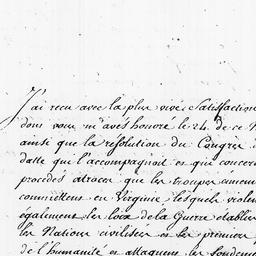 J'ai recu avec la plus vive Satisfaction
dont vous m'avés honoré le 24. de ce
ainsi que la résolution du Congrès
datte qui l'accompagnoit et qui concer
procédés atroces que les troupes
commettent en Virginie, lesquels viole
également les loix de la Guerre établie
les Nations civilisées et les premiers
de l'humanité et attaquent les fondeme